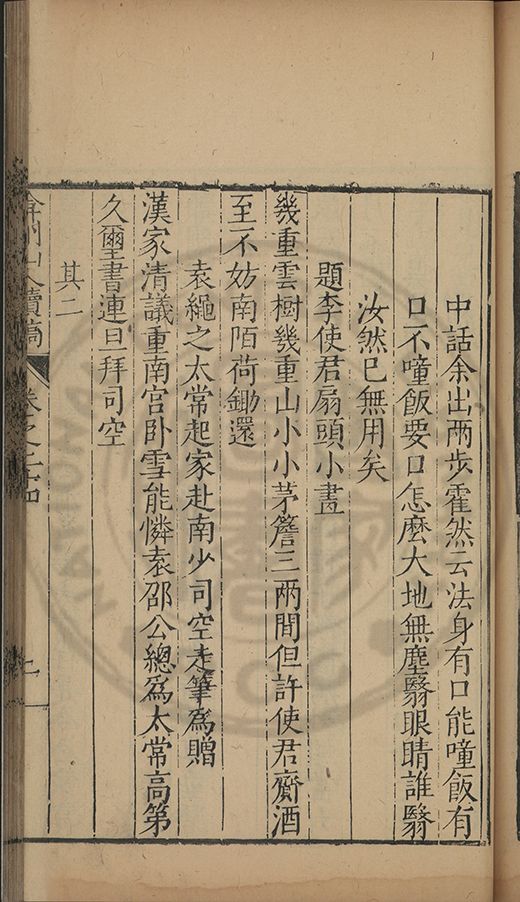 中話余出兩步霍然云法身有口能噇飯有
口不噇飯要口怎麼大地無塵翳眼睛誰翳
汝然已無用矣
題李使君扇頭小畫
幾重雲樹幾重山小小茅簷三兩間但許使君齎酒
至不妨南陌荷鋤還
袁繩之太常起家赴南少司空走筆為贈
漢家清議重南宫卧雪能憐袁邵公總為太常高第
久璽書連日拜司空
其二
弇州山人續稿 卷之二十四